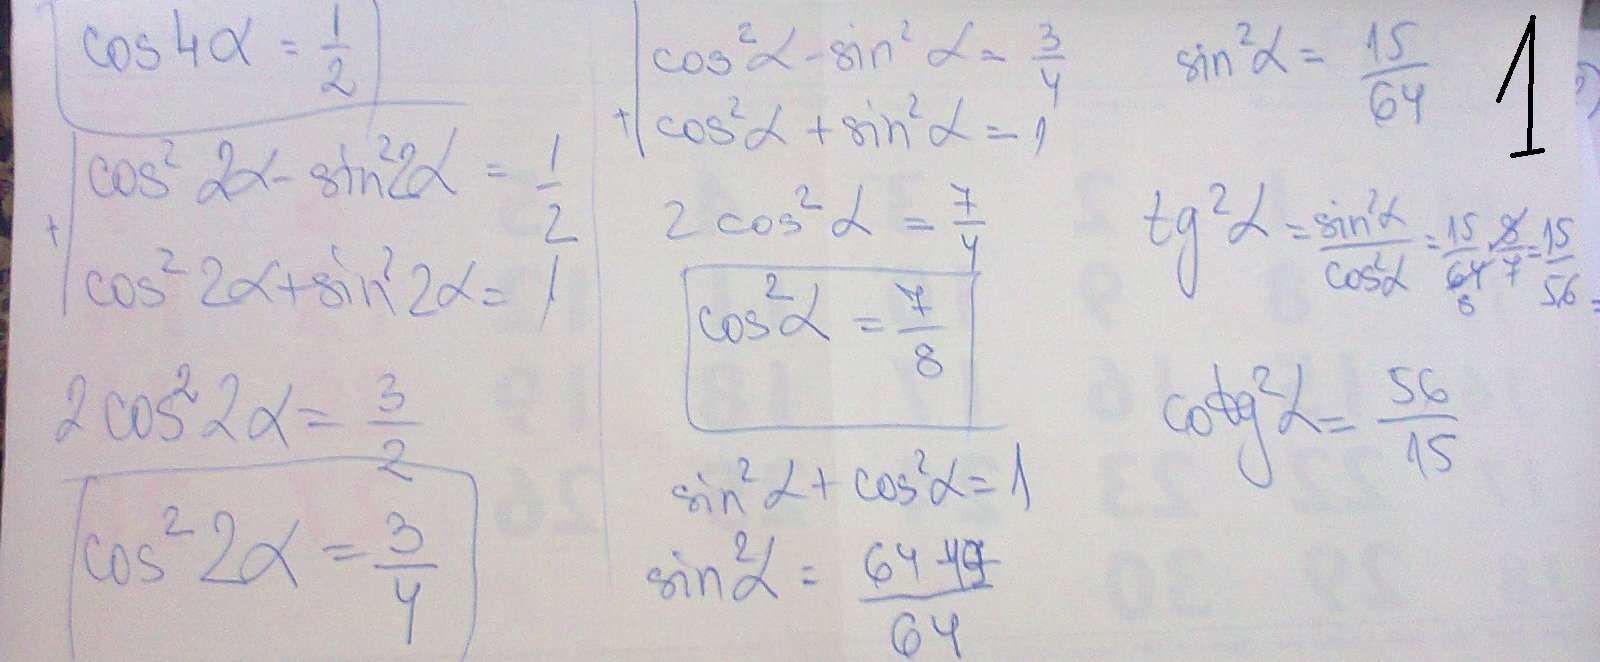 cos4α = 1/2
cos² 2α - sin² 2α = 1/2
+
cos² 2α + sin² 2α = 1
2cos² 2α = 3/2
cos² 2α = 3/4
cos²α - sin²α = 3/4
+
cos²α + sin²α = 1
2cos²α = 7/4
cos²α = 7/8
sin²α + cos²α = 1
sin²α = 64-49/64
sin²α = 15/64
1
tg²α = sin²α/cos²α = 15/64 · 8/7 = 15/56 =
8
cotg²α = 56/15